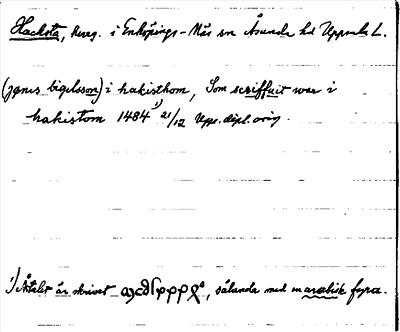 Hacksta, herrg. i Enköpings-Näs sn Åsunda hd Uppsala L.
(jønis bigelsson) i hakisthom, Som scriffuit war i
hakistom 1484 1) 21/12 Upps. dipl. orig.
1) Årtalet är skrivet, sålunda med arabisk fyra.